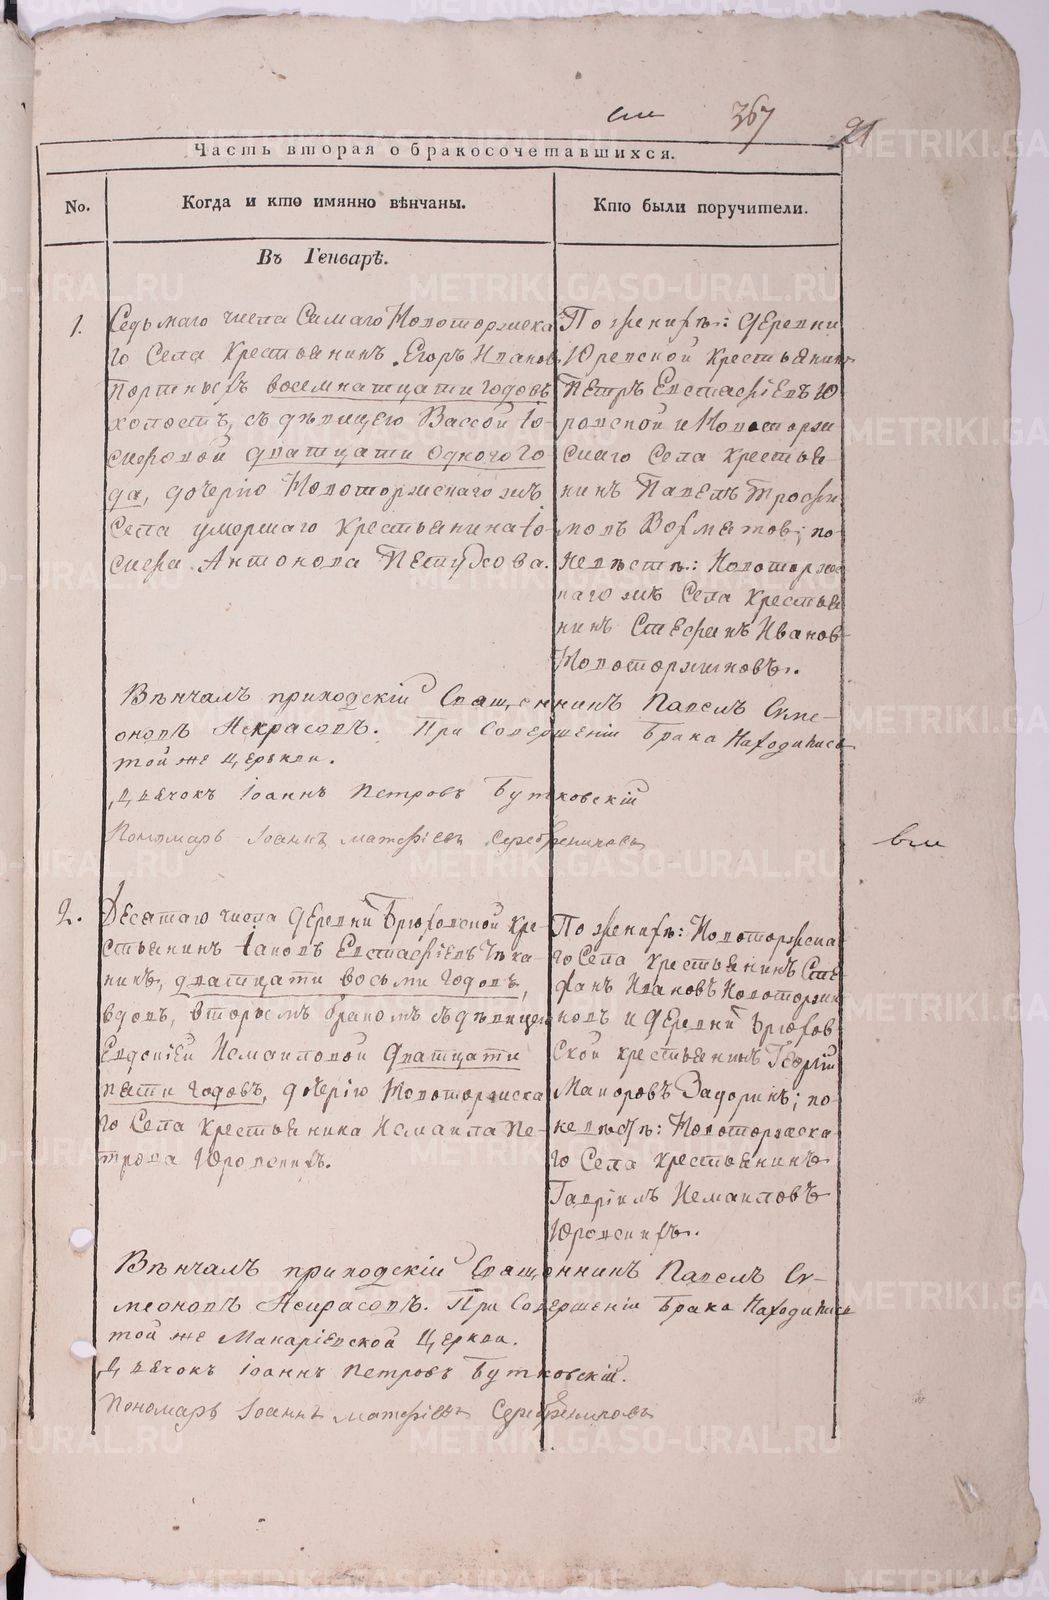 367
21
Часть вторая о бракосочетавшихся.
No.
Когда и кто имянно вѣнчаны.
Кто были поручители.
Въ Генварѣ.
1.
Седьмаго числа Самаго Новоторжска
го Села крестьянинъ Егоръ Иванов
Портныхъ восемнатцати годовъ
холостъ, съ дѣвицею Вассой Іо-
сифовой дватцати одного го
да, дочерію Новоторжскаго жъ
Села умершаго крестьянина Іо-
сифа Антонова Петухова.
По женихѣ: деревни
Юревской крестьянинъ
Петръ Евстафіевъ Ю
ровской и Новоторж
скаго Села крестья-
нинъ Павелъ Трофи
мовъ; по
невѣстѣ: Новоторжс
каго жъ Села крестья
нинъ Стефанъ Иванов
Новоторжиновъ.
Вѣнчалъ приходскій Священникъ Павелъ Симе-
оновъ Некрасовъ. При Совершеніи брака находились
той же церкви.
Дьячокъ Іоаннъ Петровъ Бутковскій
Пономарь Іоаннъ Матфіевъ Серебрениковъ
2.
Десятаго числа деревни Брюховской кре-
стьянинъ Іаковъ Евстафіевъ
дватцати восьми годовъ,
вдовъ, вторымъ бракомъ съ дѣвицею
Евдокіей Исмаиловой дватцати
пяти годовъ, дочерію Новоторжска
го Села крестьянина Исмаила Пе-
трова Юровскихъ.
По женихѣ: Новоторжска
го Села крестьянинъ Сте
фанъ Ивановъ Новоторжи
новъ и деревни Брюхов
ской крестьянинъ Георгій
Маноровъ Задоринъ; по
невѣстѣ: Новоторжска
го Села крестьянинъ
Гавріилъ Исмаиловъ
Юровскихъ.
Вѣнчалъ приходскій Священникъ Павелъ Си-
меоновъ Некрасовъ. При Совершеніи брака находились
той же Макаріевской Церкви.
Дьячокъ Іоаннъ Петровъ Бутковскій.
Пономарь Іоаннъ Матфіевъ Серебрениковъ
METRIKI.GASO-URAL.RU